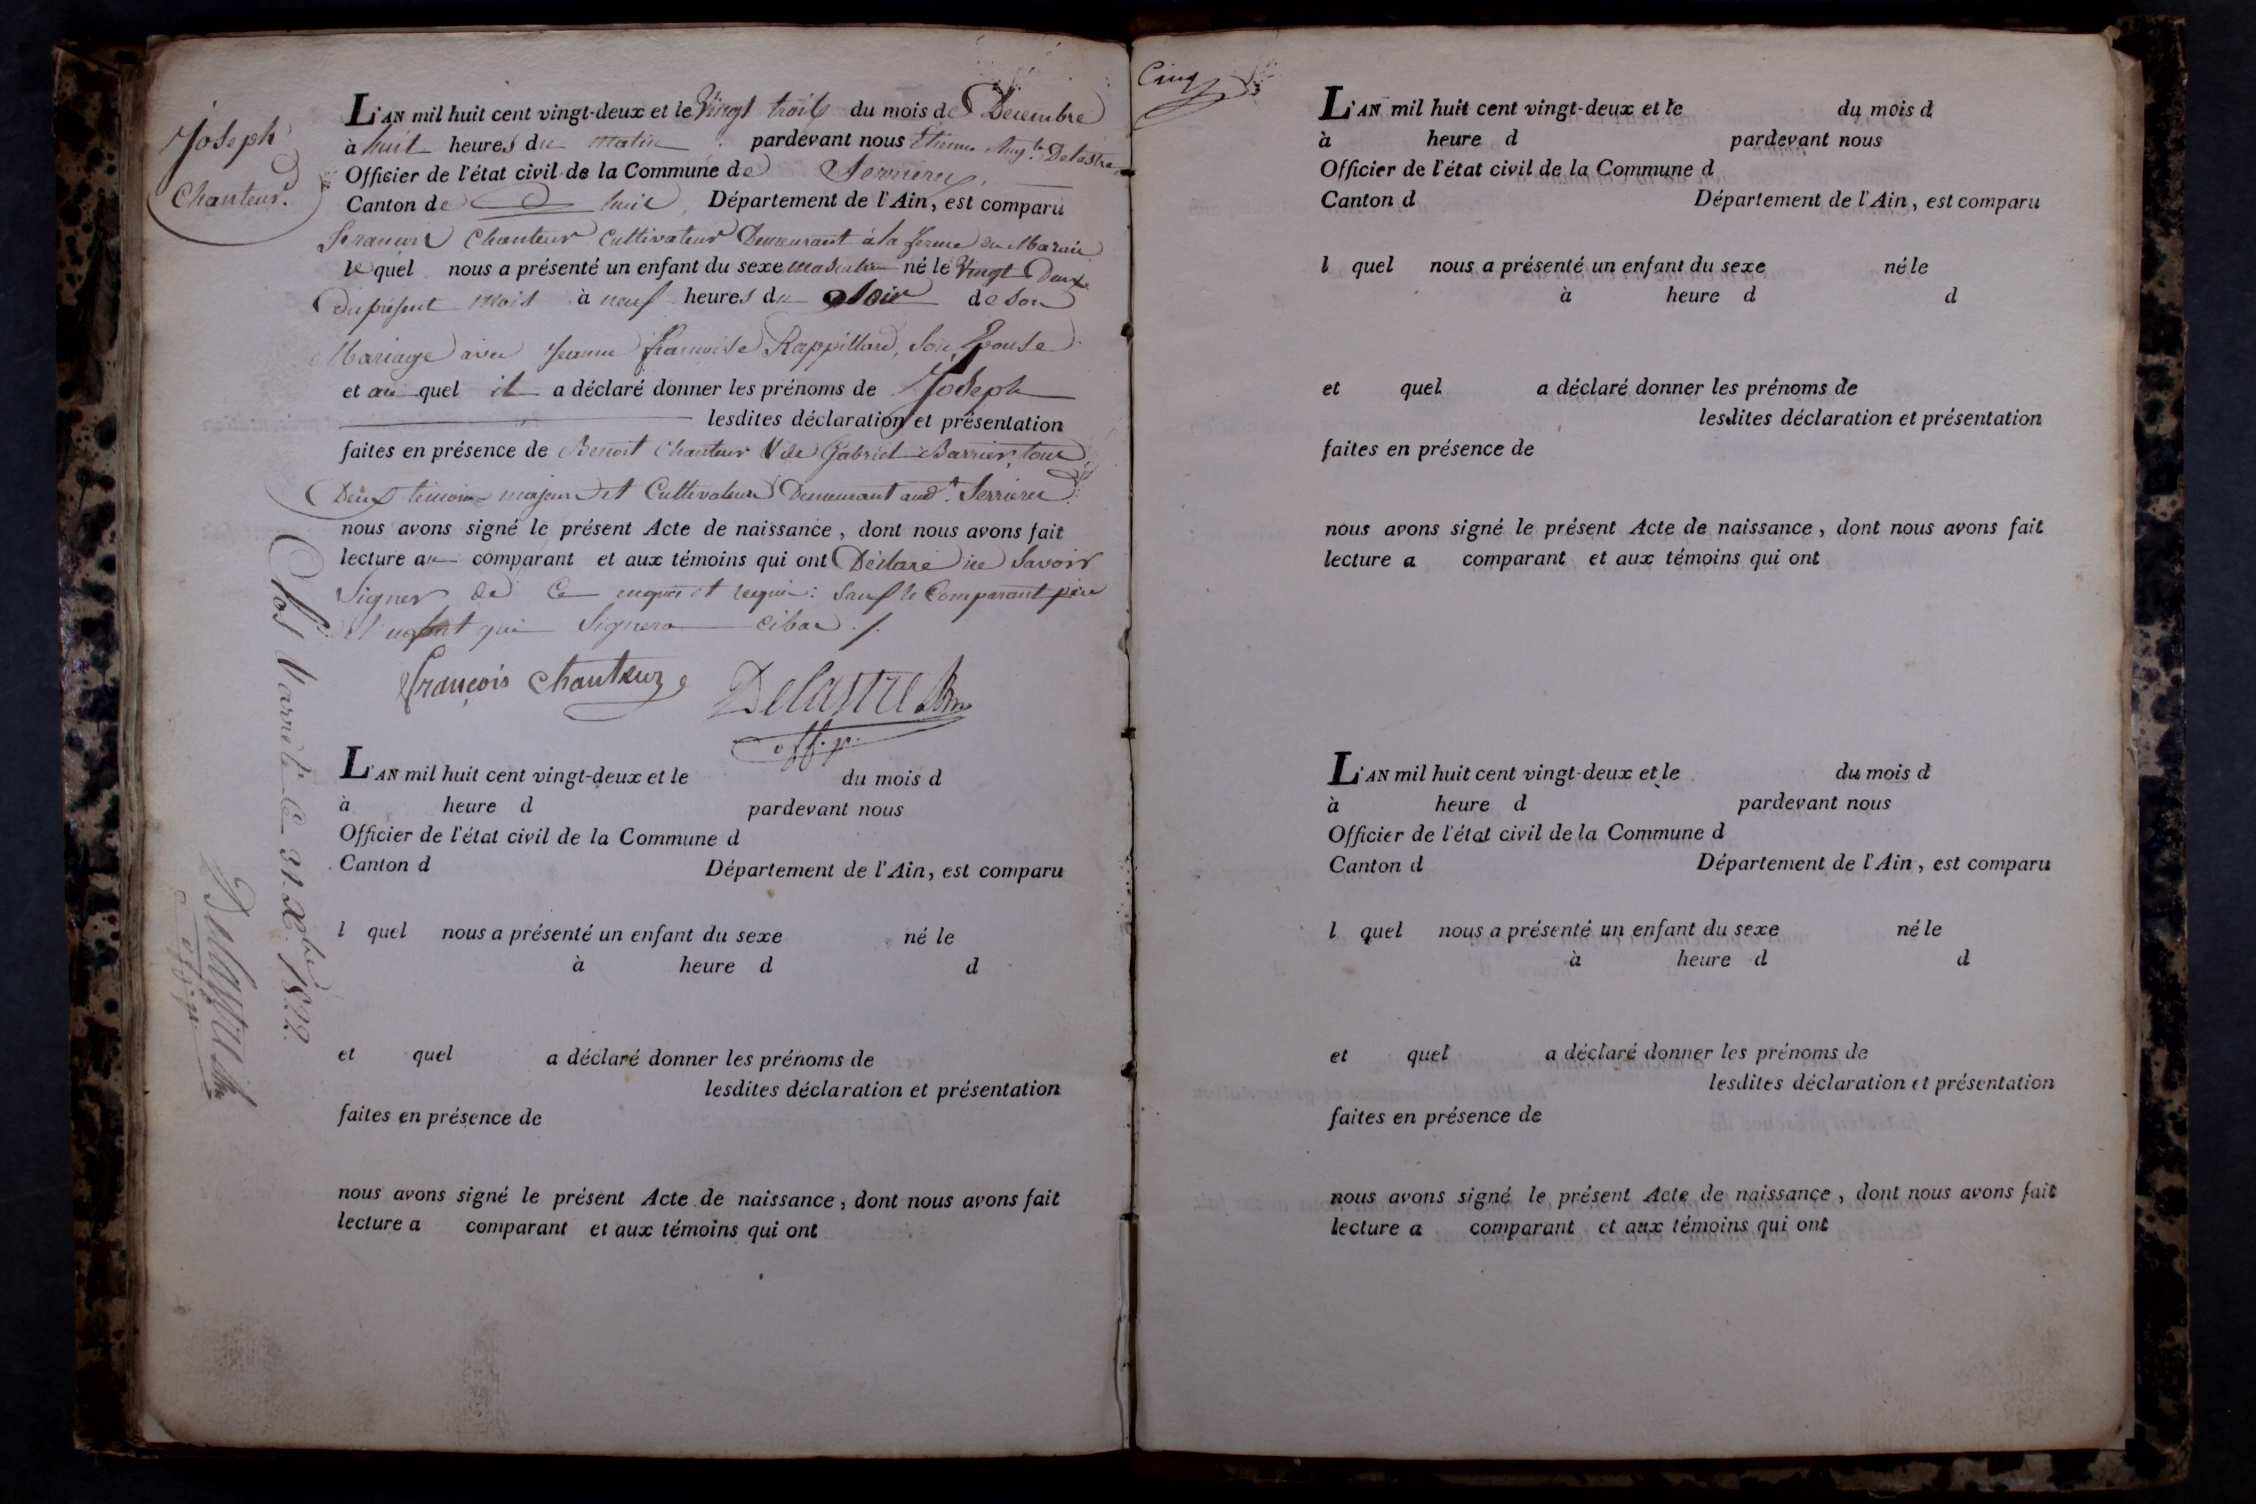 Joseph
Chanteur.
L'AN mil huit cent vingt-deux et le Vingt trois du mois de Decembre
à huit heures du matin pardevant nous Etienne Aug.te Delastre
Officier de l'état civil de la Commune de Serrieres,
Canton de Département de l'Ain, est comparu
francois Chanteur Cultivateur Demeurant à la ferme du Marais
lequel nous a présenté un enfant du sexe masculin né le Vingt Deux
Du présent mois à neuf heures du soir de son
Mariage avec Jeanne françoise Rappillard, Son Epouse
et au quel il a déclaré donner les prénoms de Joseph
lesdites déclaration et présentation
faites en présence de Benoit Chanteur & de Gabriel Barrier, tous
Deux temoins majeurs et Cultivateurs Demeurant aud.t Serrieres
nous avons signé le présent Acte de naissance, dont nous avons fait
lecture au comparant et aux témoins qui ont Déclaré ne Savoir
Signer de Ce enquis et requis: Sauf le Comparant père
de l'enfant qui Signera
françois chanteur Delastre
off. p.
Clos & arreté le 31 Xbre 1822.
Delastre
off. p.
L'AN mil huit cent vingt-deux et le du mois d
à heure d pardevant nous
Officier de l'état civil de la Commune d
Canton d Département de l'Ain, est comparu
l quel nous a présenté un enfant du sexe né le
à heure d d
et quel a déclaré donner les prénoms de
lesdites déclaration et présentation
faites en présence de
nous avons signé le présent Acte de naissance, dont nous avons fait
lecture a comparant et aux témoins qui ont
Cinq
L'AN mil huit cent vingt-deux et le du mois d
à heure d pardevant nous
Officier de l'état civil de la Commune d
Canton d Département de l'Ain, est comparu
l quel nous a présenté un enfant du sexe né le
à heure d d
et quel a déclaré donner les prénoms de
lesdites déclaration et présentation
faites en présence de
nous avons signé le présent Acte de naissance, dont nous avons fait
lecture a comparant et aux témoins qui ont
L'AN mil huit cent vingt-deux et le du mois d
à heure d pardevant nous
Officier de l'état civil de la Commune d
Canton d Département de l'Ain, est comparu
l quel nous a présenté un enfant du sexe né le
à heure d d
et quel a déclaré donner les prénoms de
lesdites déclaration et présentation
faites en présence de
nous avons signé le présent Acte de naissance, dont nous avons fait
lecture a comparant et aux témoins qui ont